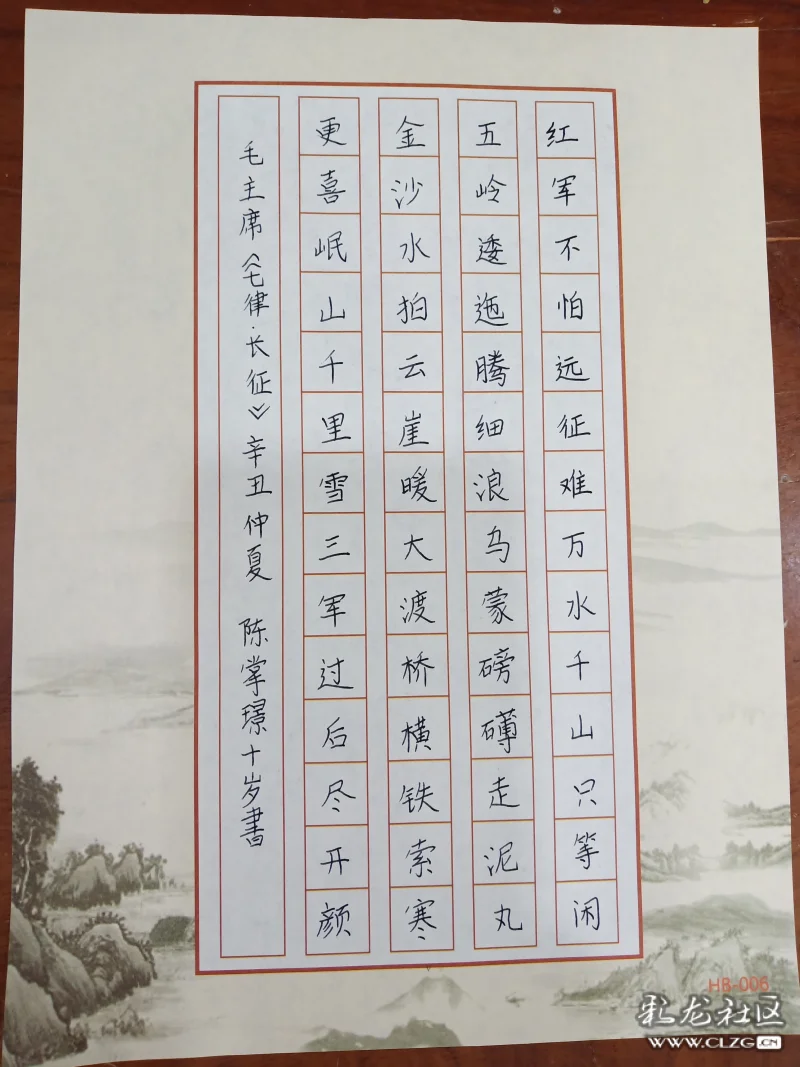 红军不怕远征难万水千山只等闲
五岭逶迤腾细浪乌蒙磅礴走泥丸
金沙水拍云崖暖大渡桥横铁索寒
更喜岷山千里雪三军过后尽开颜
毛主席《七律·长征》辛丑仲夏 陈掌璟十岁書
HB-006
乳龙社区
WWW.CLZG.CN